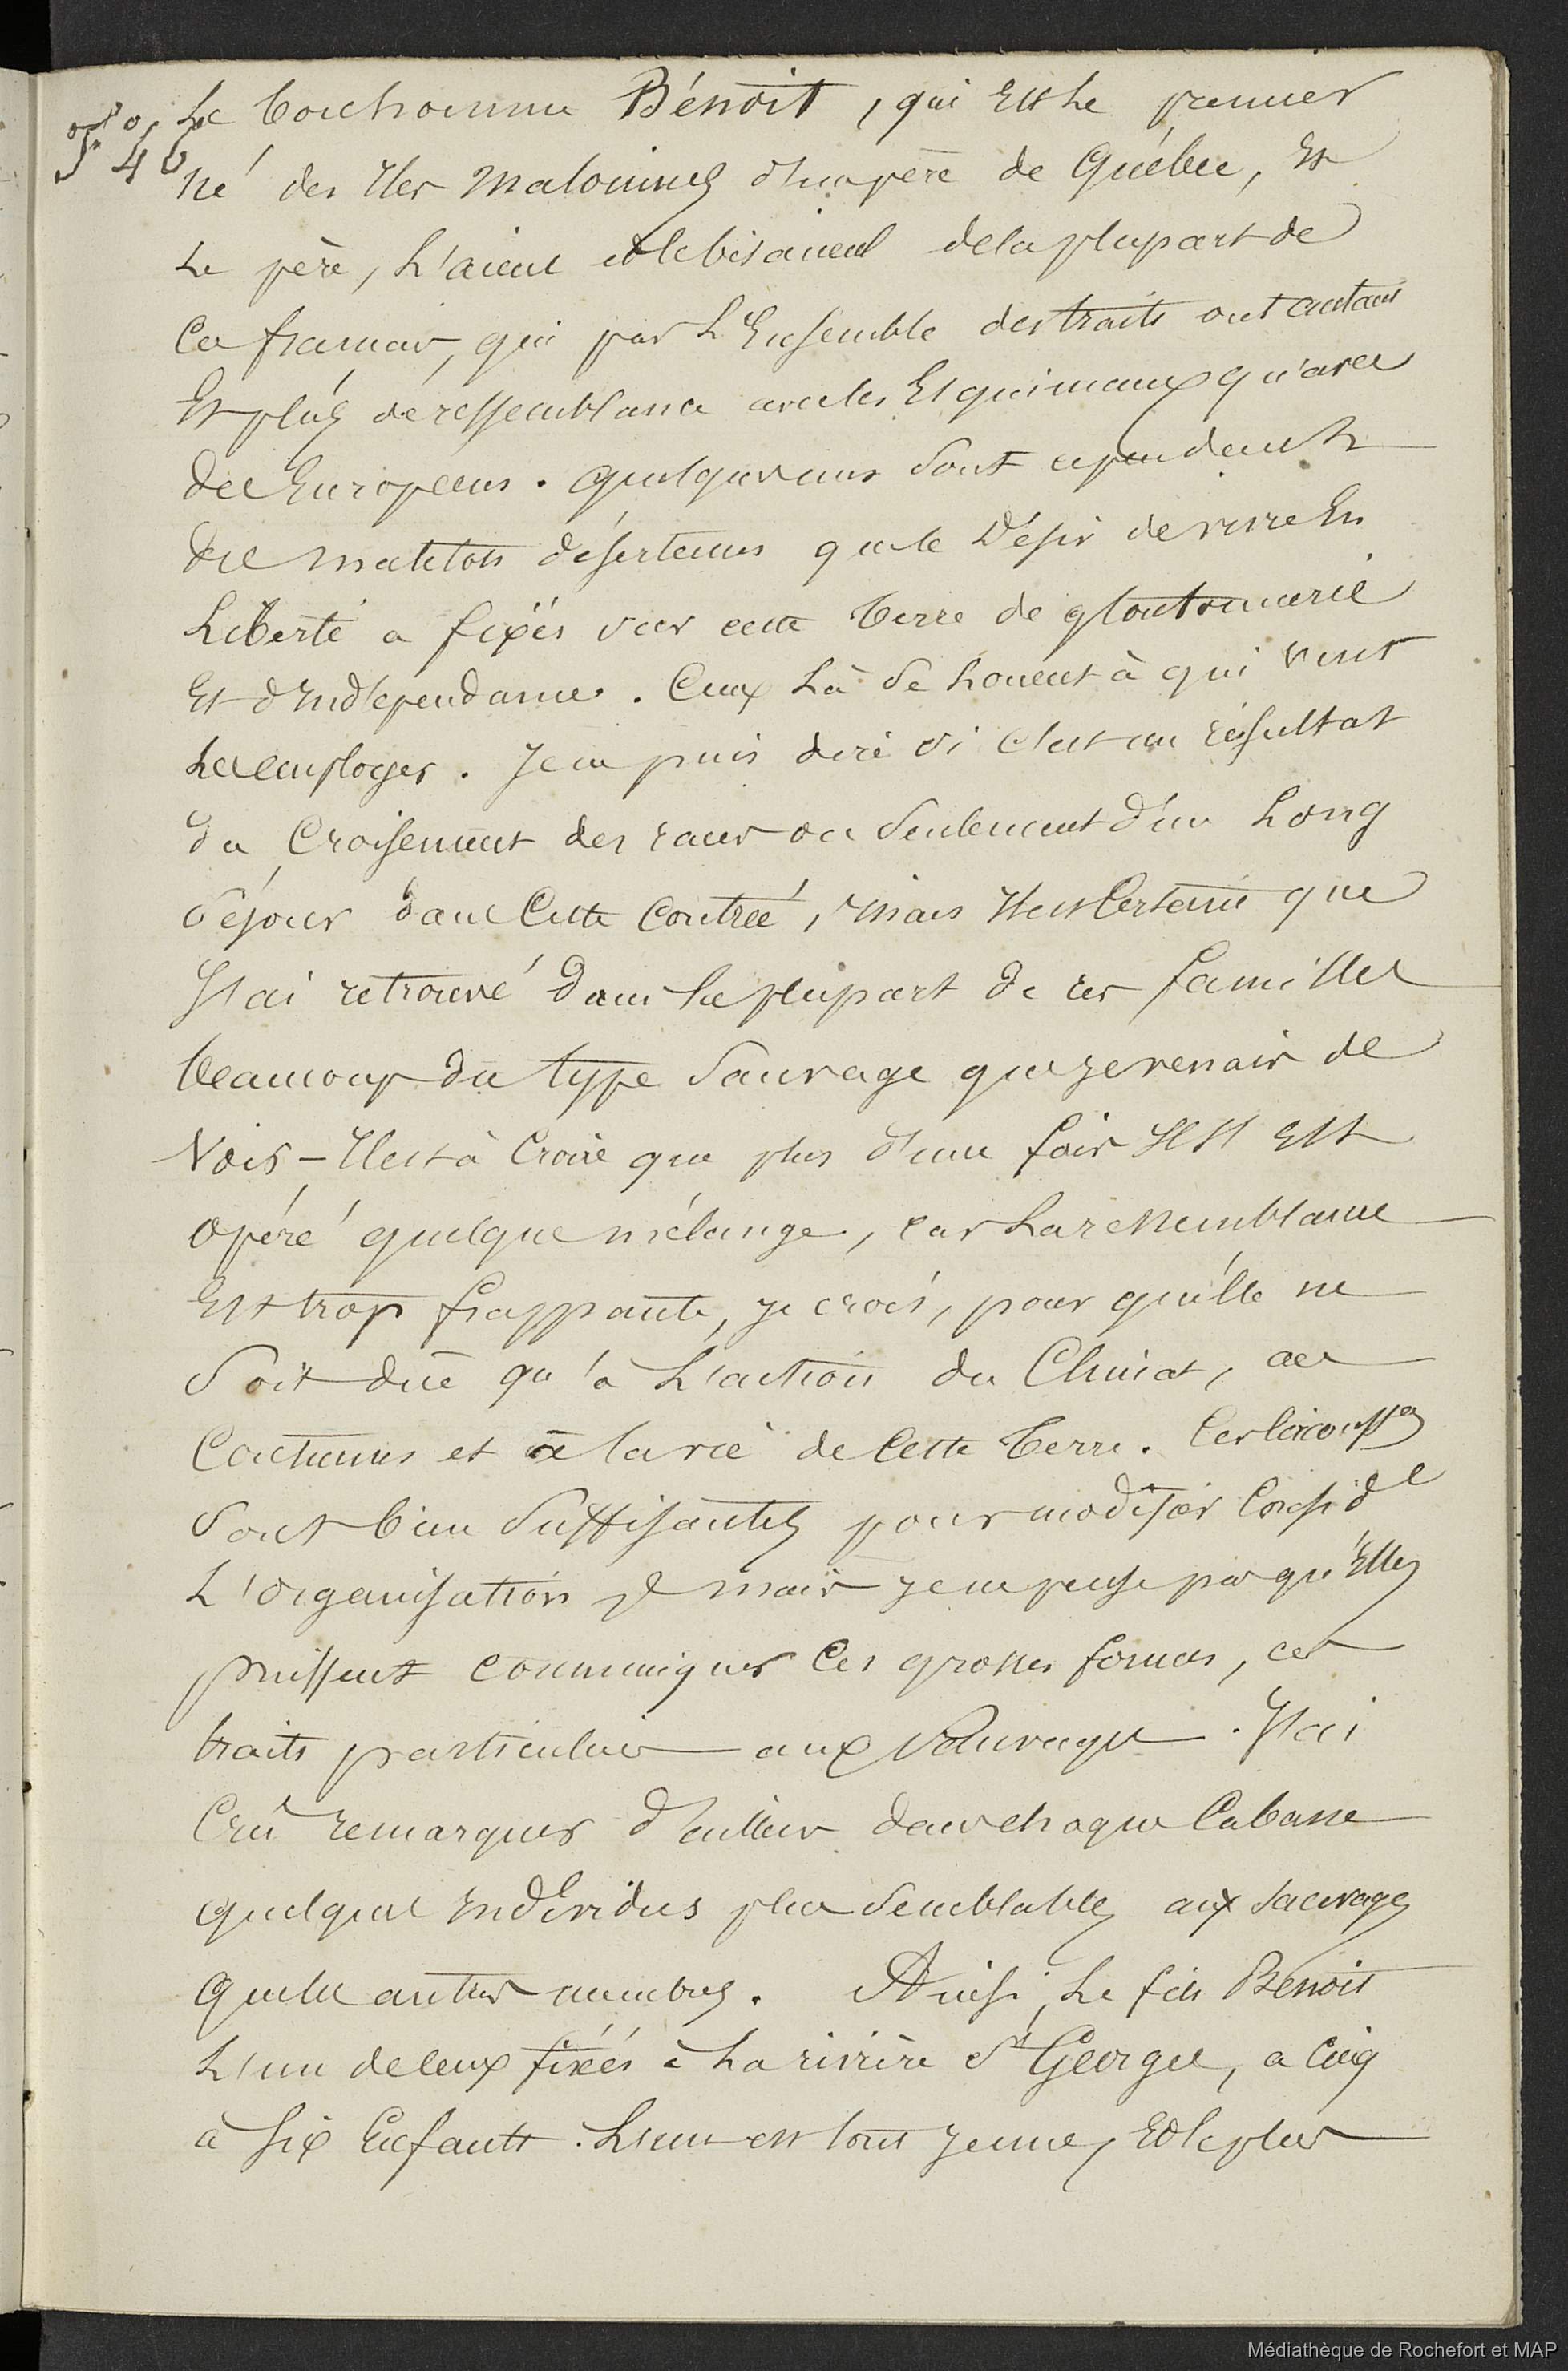 F° 46
Le bonhomme Bénoit, qui est le premier
né des Iles Malouines d'un père de Québec, est
le père, l'aieul et le bisaieul de la plupart de
ces francais, qui par l'Ensemble des traits ont autant
et plus de ressemblance avec les Esquimaux qu'avec
des Européens. quelques uns sont cependant
des matelots déserteurs que le Désir de vivre En
Liberté a fixés sur cette terre de gloutonnerie
Et d'Indépendance. Ceux là se louent à qui veut
les employer. Je ne puis dire si c'est un résultat
du Croisement des races ou seulement d'un Long
séjour dans Cette Contrée, mais Il est Certain que
J'ai retrouvé dans la plupart de ces familles
beaucoup du type Sauvage que je venais de
Voir – Il est à Croire que plus d'une fois Il s'est
opéré quelque mélange, car la ressemblance
Est trop frappante, je crois, pour qu'elle ne
soit due qu'à L'action du Climat, aux
Coutumes et à la vie de Cette terre. Ces
Sont bien Suffisantes pour modifier
L'organisation mais je ne pense pas qu'Elles
puissent communiquer Ces grosses formes, ces
traits particuliers aux Sauvages. J'ai
Crû remarquer d'ailleurs dans chaque Cabane
quelques Individus plus semblables aux sauvages
que les autres membres. Ainsi, le fils Benoit
L'un de ceux fixés à la rivière St Georges, a Cinq
à six Enfants. L'un est tout jeune, Et le plus
Médiathèque de Rochefort et MAP